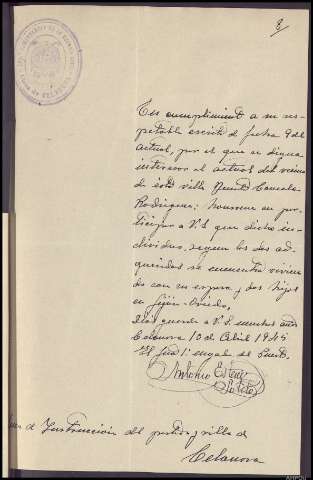 8
En cumplimiento a su res-
petable escrito de fecha 9 del
actual, por el que se digna
interesar el actual del vecino
de esta villa Benito
Rodriguez; honrome en par-
ticipar a V.S. que dicho in-
dividuo, segun los dos ad-
queridos se encuentra vivien-
do con su esposa y dos hijos
en Gijón-Oviedo.
Dios guarde a V.S. muchos años
Celanova 10 de Abril 1945
El Guardia 1º encgdo del Puesto.
Antonio
de Instrucción del partido y villa de
Celanova